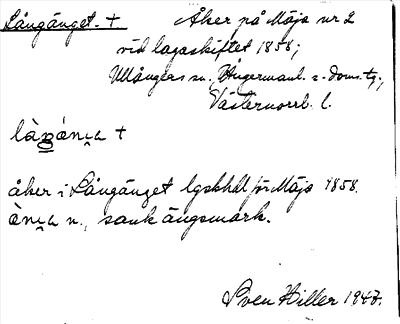 Långänget. + Åker på Mäja nr 2
vid lagaskiftet 1858;
Ullångers sn., Ångermanl. s. doms.tg.,
Västernorrl. l.
+
åker i Långänget lgskhdl för Mäja 1858.
n., sank ängsmark.
Sven Hiller 1947.